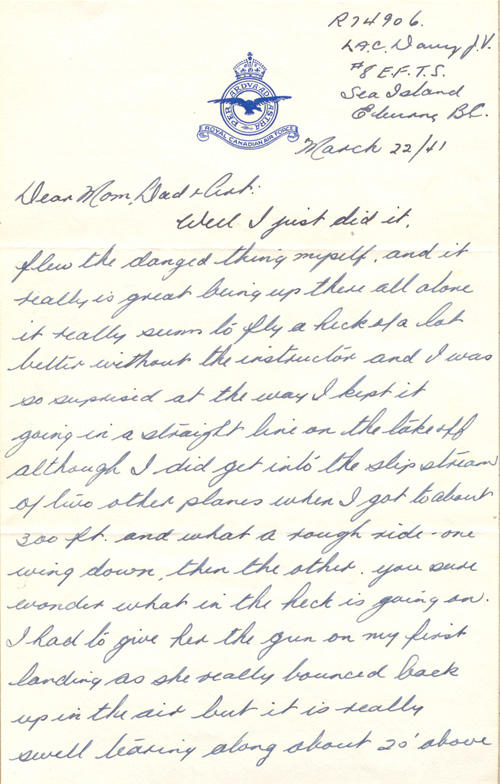 R74906.
L.A.C. Davy J.V.
#8 E.F.T.S.
Sea Island
Eburne B.C.
March 22/41
PER ARDVA AD ASTRA
ROYAL CANADIAN AIR FORCE
Dear Mom, Dad & Art:
Well I just did it,
flew the danged thing myself, and it
really is great being up there all alone
it really seems to fly a heck of a lot
better without the instructor and I was
so suprised at the way I kept it
going in a straight line on the takeoff
although I did get into the slip stream
of two other planes when I got to about
300 ft. and what a rough ride - one
wing down, then the other, you sure
wonder what in the heck is going on.
I had to give her the gun on my first
landing as she really bounced back
up in the air but it is really
swell tearing along about 20' above